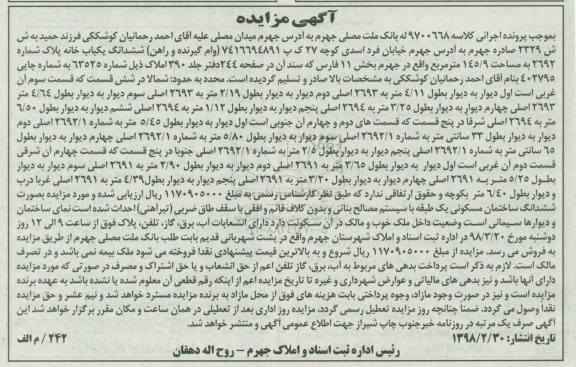 آگهی مزایده
بموجب پرونده اجرائی کلاسه ۹۷۰۰۶۶۸ له بانک ملت مصلی جهرم به آدرس جهرم میدان مصلی علیه آقای احمد رحمانیان کوشککی فرزند حمید به ش
ش ۲۳۲۹ صادره جهرم به آدرس جهرم خیابان فرد اسدی کوچه ۲۷ ک پ ۷۴۱۶۶۹۴۸۹۱ (وام گیرنده و راهن) ششدانگ یکباب خانه پلاک شماره
۲۶۹۲ به مساحت ۱۴۵/۹ مترمربع واقع در جهرم بخش ۱۱ فارس که سند آن در صفحه ۲۴۴ دفتر جلد ۳۹۰ املاک ذیل شماره ۶۳۵۲۵ به شماره چاپی
۴۰۲۷۹۵ بنام آقای احمد رحمانیان کوشککی به مشخصات بالا صادر و تسلیم گردیده است. محدود به حدود: شمالا در شش قسمت که قسمت سوم آن
غربی است اول دیوار به دیوار بطول ۴/۱۱ متر به ۲۶۹۳ اصلی دوم دیوار به دیوار بطول ۲/۱۹ متر به ۲۶۹۳ اصلی سوم دیوار به دیوار بطول ۴/۶۴ متر
۲۶۹۳ اصلی چهارم دیوار به دیوار بطول ۳/۲۵ متر به شماره ۲۶۹۴ اصلی پنجم دیوار به دیوار بطول ۱/۱۲ متر به ۲۶۹۴ اصلی ششم دیوار به دیوار بطول ۶/۵۰
متر به ۲۶۹۴ اصلی شرقا در پنج قسمت که قسمت های دوم و چهارم آن جنوبی است اول دیوار به دیوار بطول ۵/۴۵ متر به شماره ۲۶۹۲/۱ اصلی دوم
دیوار به دیوار بطول ۲۳ سانتی متر به شماره ۲۶۹۲/۱ اصلی سوم دیوار به دیوار بطول ۵/۸۰ متر به شماره ۲۶۹۲/۱ اصلی چهارم دیوار به دیوار بطول
۶۵ سانتی متر به شماره ۲۶۹۲/۱ اصلی پنجم دیوار به دیوار بطول ۲/۵ متر به شماره ۲۶۹۲/۱ اصلی جنوبا در پنج قسمت که قسمت چهارم آن شرقی
قسمت دوم آن غربی است اول دیوار به دیوار بطول ۳/۶۵ متر به ۲۶۹۱ اصلی دوم دیوار به دیوار بطول ۲/۹۰ متر به ۲۶۹۱ اصلی سوم دیوار به دیوار
بطول ۵/۲۵ متر به ۲۶۹۱ اصلی چهارم دیوار به دیوار بطول ۳/۲۰ متر به ۲۶۹۱ اصلی پنجم دیوار به دیوار بطول ۴/۳۹ متر به ۲۶۹۱ اصلی غربا درب
و دیوار بطول ۶/۴۰ متر بکوچه و حقوق ارتفاقی ندارد که طبق نظر کارشناس رسمی به مبلغ ۱۱۷۰۹۰۵۰۰۰ ریال ارزیابی شده و مورد مزایده بصورت
ششدانگ ساختمان مسکونی یک طبقه با سیستم مصالح بنائی و بدون کلاف قائم و افقی با سقف طاق ضربی (تیرآهنی) احداث شده است نمای ساختمان
و دیوارها سیمانی است وضعیت داخل ملک خوب و مالک در آن سکونت دارد دارای انشعابات آب، برق، گاز، تلفن، پلاک فوق از ساعت ۹ الی ۱۲ روز
دوشنبه مورخ ۹۸/۳/۲۰ در اداره ثبت اسناد و املاک شهرستان جهرم واقع در پشت شهربانی قدیم بابت طلب بانک ملت مصلی جهرم از طریق مزایده
به فروش می رسد. مزایده از مبلغ ۱۱۷۰۹۰۵۰۰۰ ریال شروع و به بالاترین قیمت پیشنهادی نقدا فروخته می شود ملک بیمه نمی باشد و در تصرف
مالک است. لازم به ذکر است پرداخت بدهی های مربوط به آب، برق، گاز تلفن اعم از حق انشعاب و یا حق اشتراک و مصرف در صورتی که مورد مزایده
دارای آنها باشد و نیز بدهی های مالیاتی و عوارض شهرداری و غیره تا تاریخ مزایده اعم از اینکه رقم قطعی آن معلوم شده یا نشده باشد به عهده برنده
مزایده است و نیز در صورت وجود مازاد، وجوه پرداختی بابت هزینه های فوق از محل مازاد به برنده مزایده مسترد خواهد شد و نیم عشر و حق مزایده
نقدا وصول می گردد. ضمنا چنانچه روز مزایده تعطیل رسمی گردد، مزایده روز اداری بعد از تعطیلی در همان ساعت و مکان مقرر برگزار خواهد شد. این
آگهی صرف یک مرتبه در روزنامه خبرجنوب چاپ شیراز جهت اطلاع عمومی آگهی و منتشر خواهد شد.
تاریخ انتشار: ۱۳۹۸/۲/۳۰
۲۴۲ / م الف
رئیس اداره ثبت اسناد و املاک جهرم - روح اله دهقان